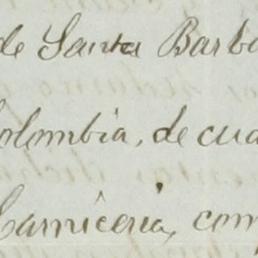 de Santa Barba
Colombia, de cua
Carniceria, com